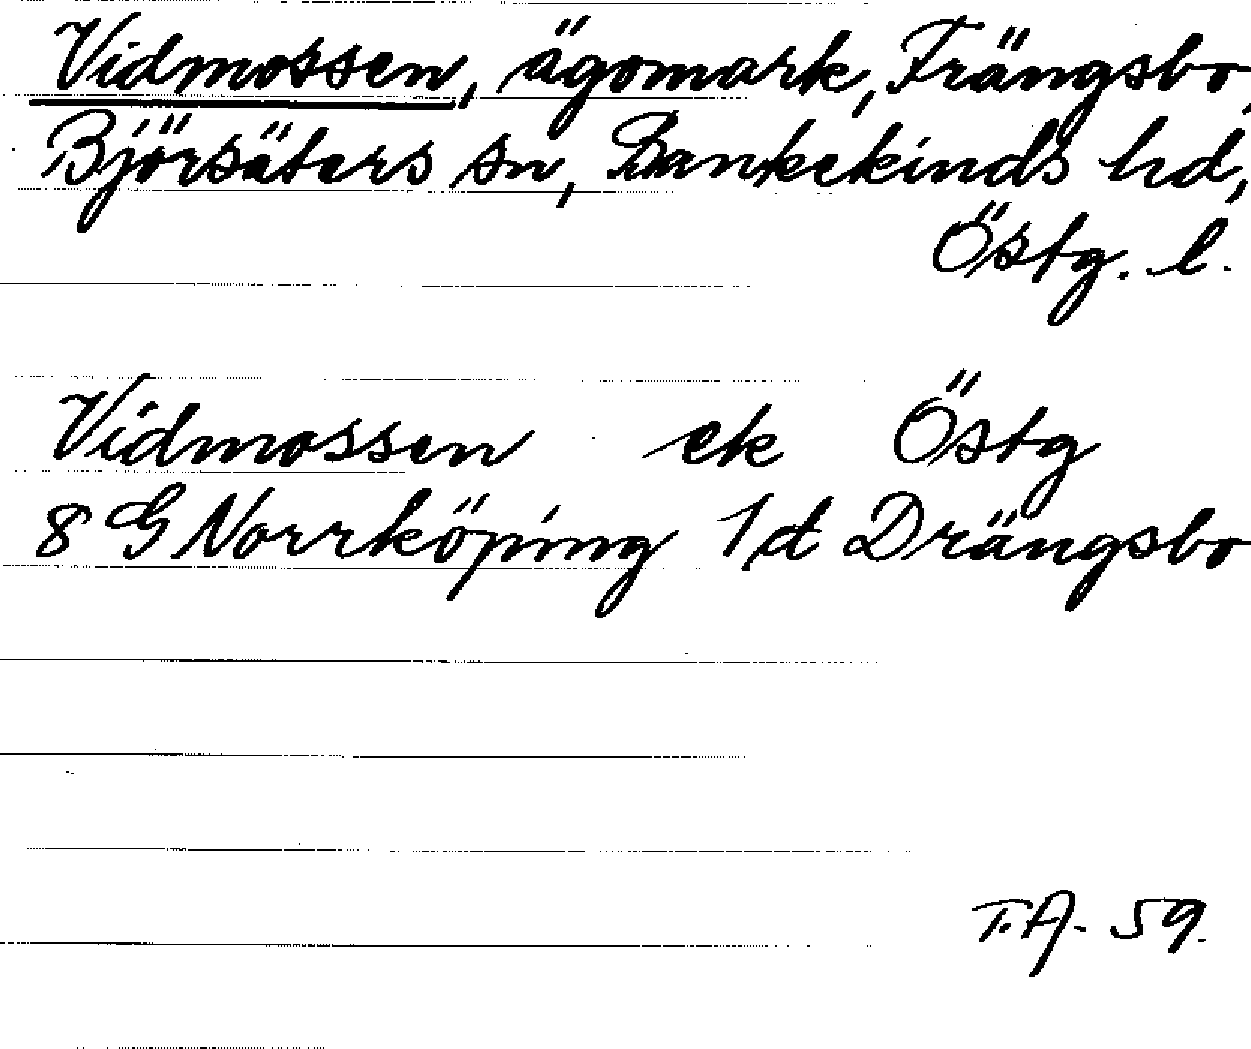 Vidmossen, ägomark, Frängsbo,
Björsäters sn, Bankekinds hd,
Östg. l.
Vidmossen ek Östg
8 G Norrköping 1d Drängsbo
T.A. 59.